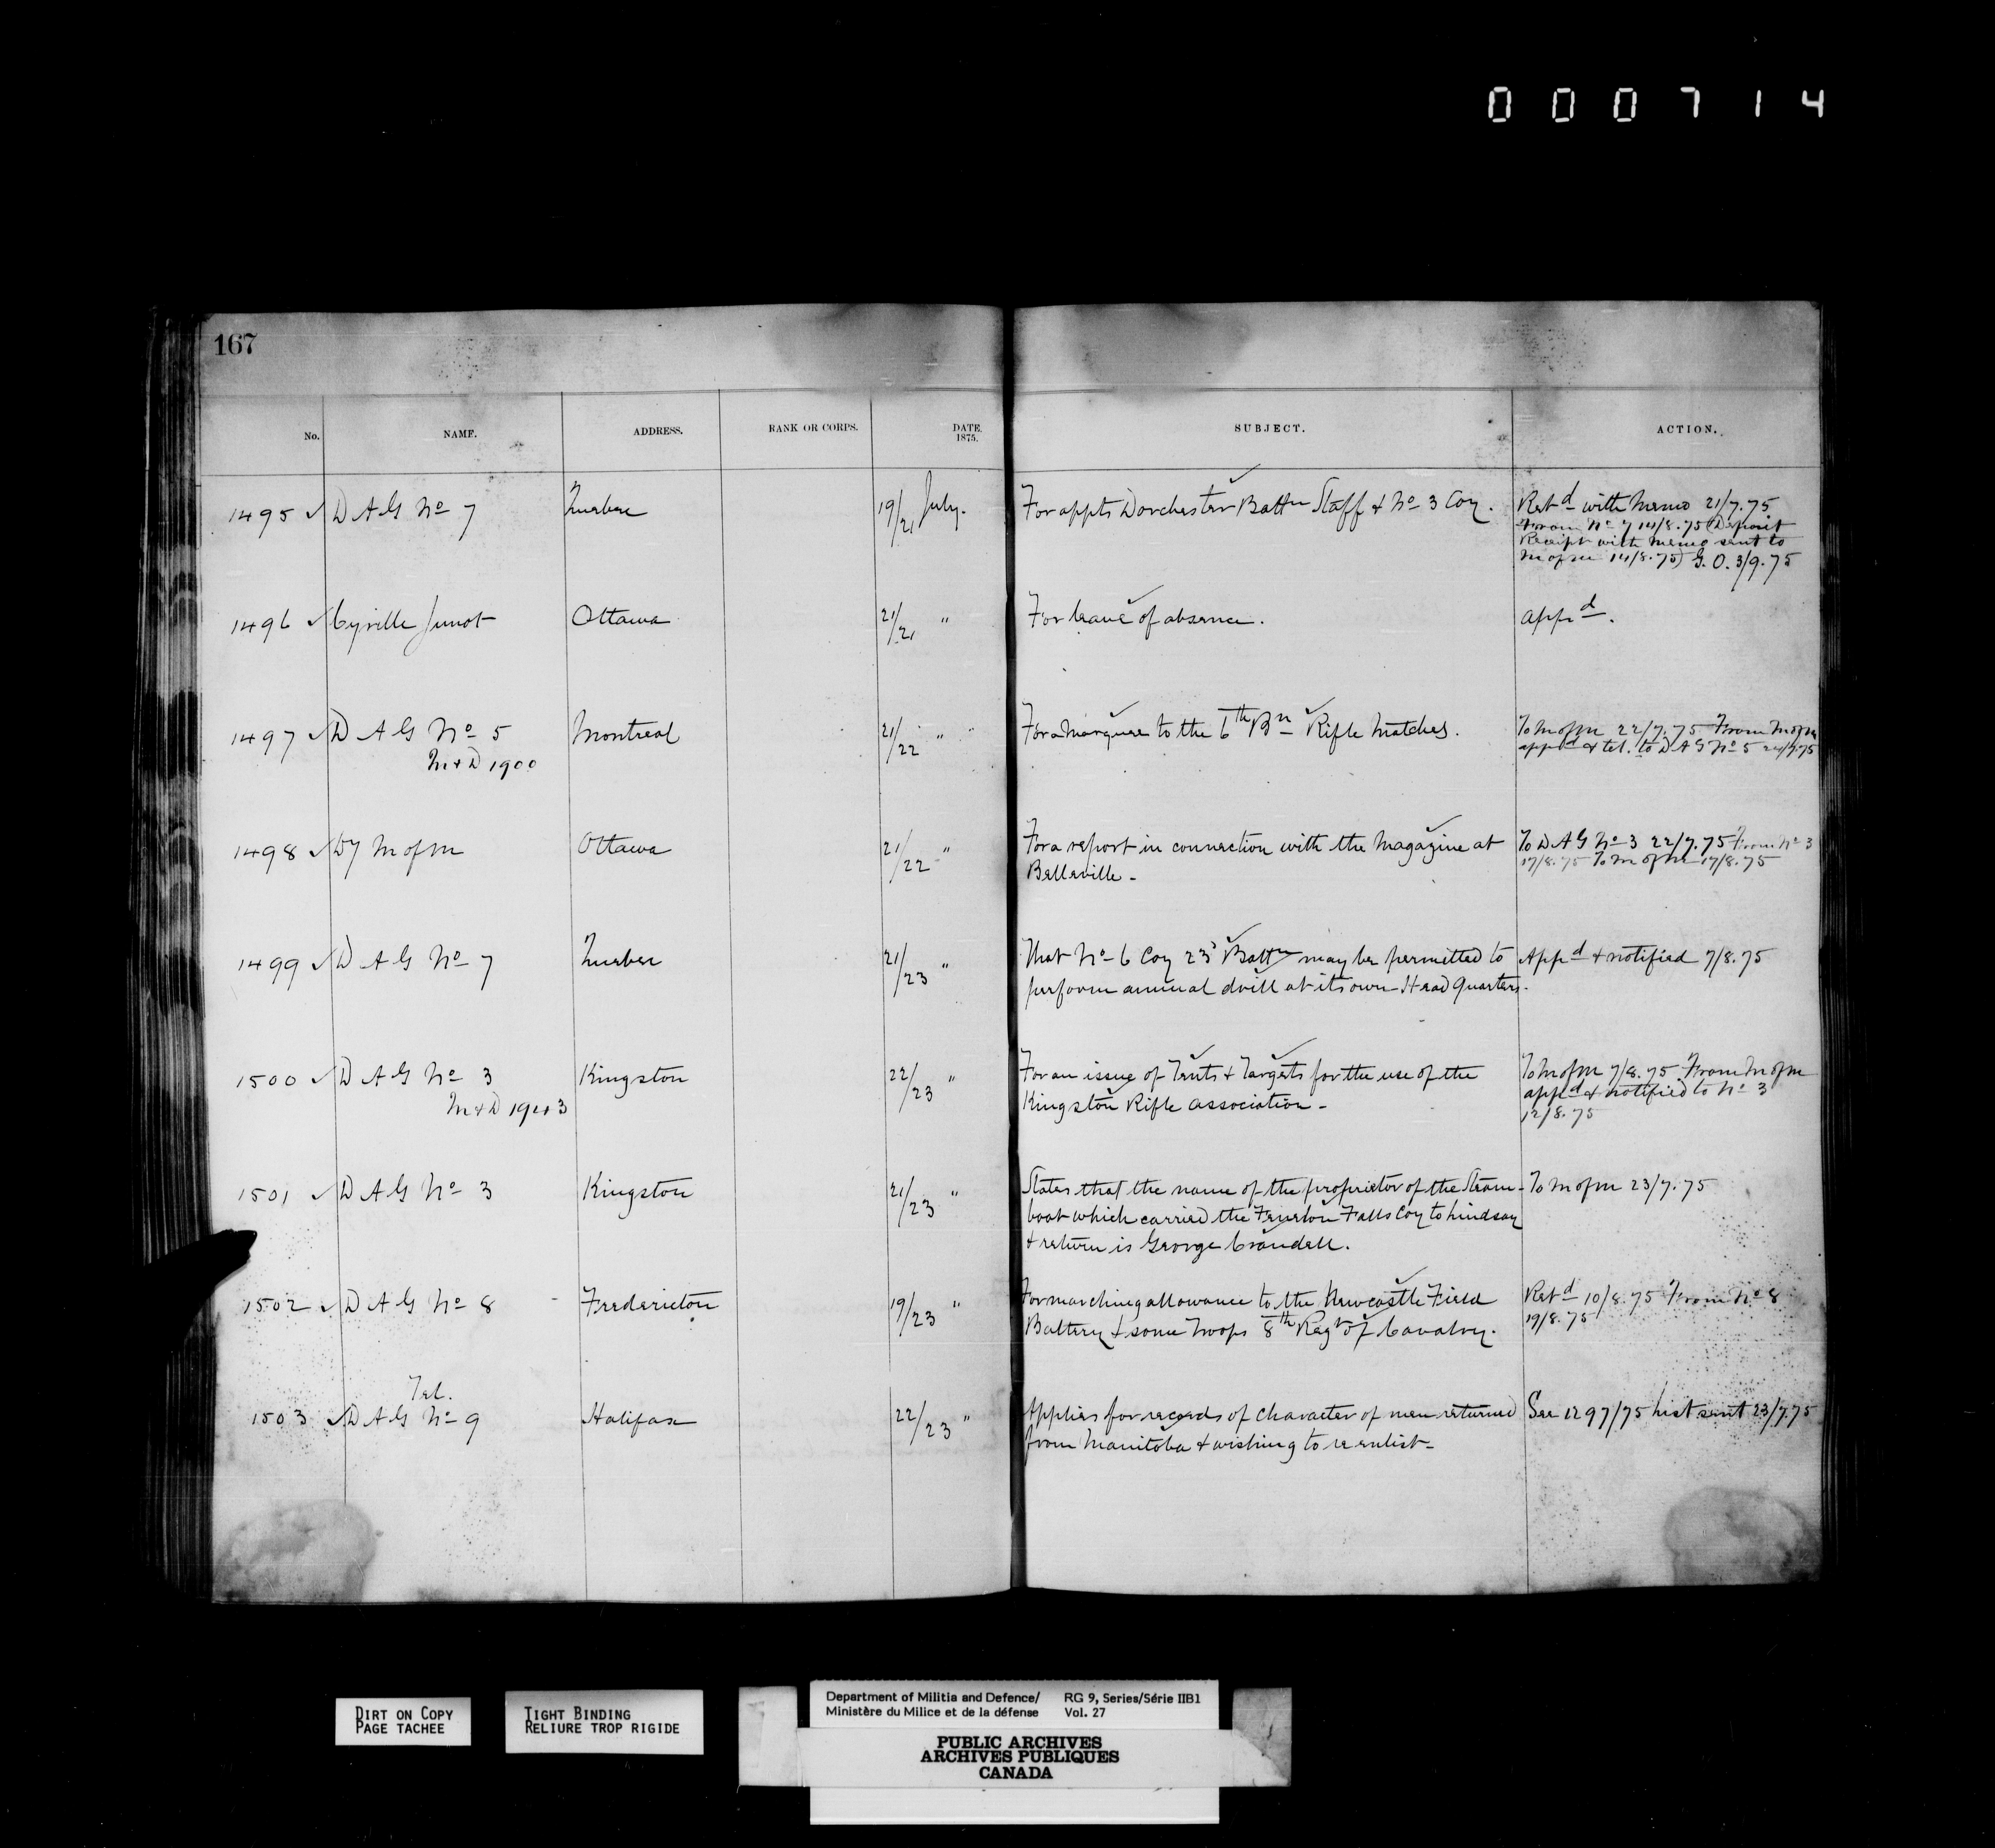 000714
167
No. NAME. ADDRESS. RANK OR CORPS. DATE. 1875. SUBJECT. ACTION.
1495 ✓ D A G No 7 Quebec 19/21 July. For appts Dorchester Battn Staff & No 3 Coy. Retd with Memo 21/7.75
From No 7 14/8.75 (Deposit
Receipt with memo sent to
M of M 14/8.75) G. O. 3/9.75
1496 ✓ Cyrille Junot Ottawa 21/21 " For leave of absence. appd.
1497 ✓ D A G No 5 Montreal 21/22 " For a Marquee to the 6th Bn Rifle Matches. To M of M 22/7.75 From M of M
M & D 1900 appd & tel. to D A G No 5 24/7.75
1498 ✓ Dy M of M Ottawa 21/22 " For a report in connection with the Magazine at To D A G No 3 22/7.75 From No 3
Belleville - 17/8.75 To M of M 17/8.75
1499 ✓ D A G No 7 Quebec 21/23 " That No 6 Coy 23d Battn may be permitted to Appd & notified 7/8.75
perform annual drill at its own Head Quarters.
1500 ✓ D A G No 3 Kingston 22/23 " For an issue of Tents & Targets for the use of the To M of M 7/8.75 From M of M
M & D Kingston Rifle Association - appd & notified to No 3
12/8.75
1501 ✓ D A G No 3 Kingston 21/23 " States that the name of the proprietor of the Steam- To M of M 23/7.75
boat which carried the Fenelon Falls Coy to Lindsay
& return is George Crandell.
1502 ✓ D A G No 8 Fredericton 19/23 " For marching allowance to the Newcastle Field Retd 10/8.75 From No 8
Battery & some Troops 8th Regt of Cavalry. 19/8.75
Tel.
1503 ✓ D A G No 9 Halifax 22/23 " Applies for records of character of men returned See 1297/75 List sent 23/7.75
from Manitoba & wishing to re enlist -
DIRT ON COPY
PAGE TACHEE
TIGHT BINDING
RELIURE TROP RIGIDE
Department of Militia and Defence/ RG 9, Series/Série IIB1
Ministère du Milice et de la défense Vol. 27
PUBLIC ARCHIVES
ARCHIVES PUBLIQUES
CANADA